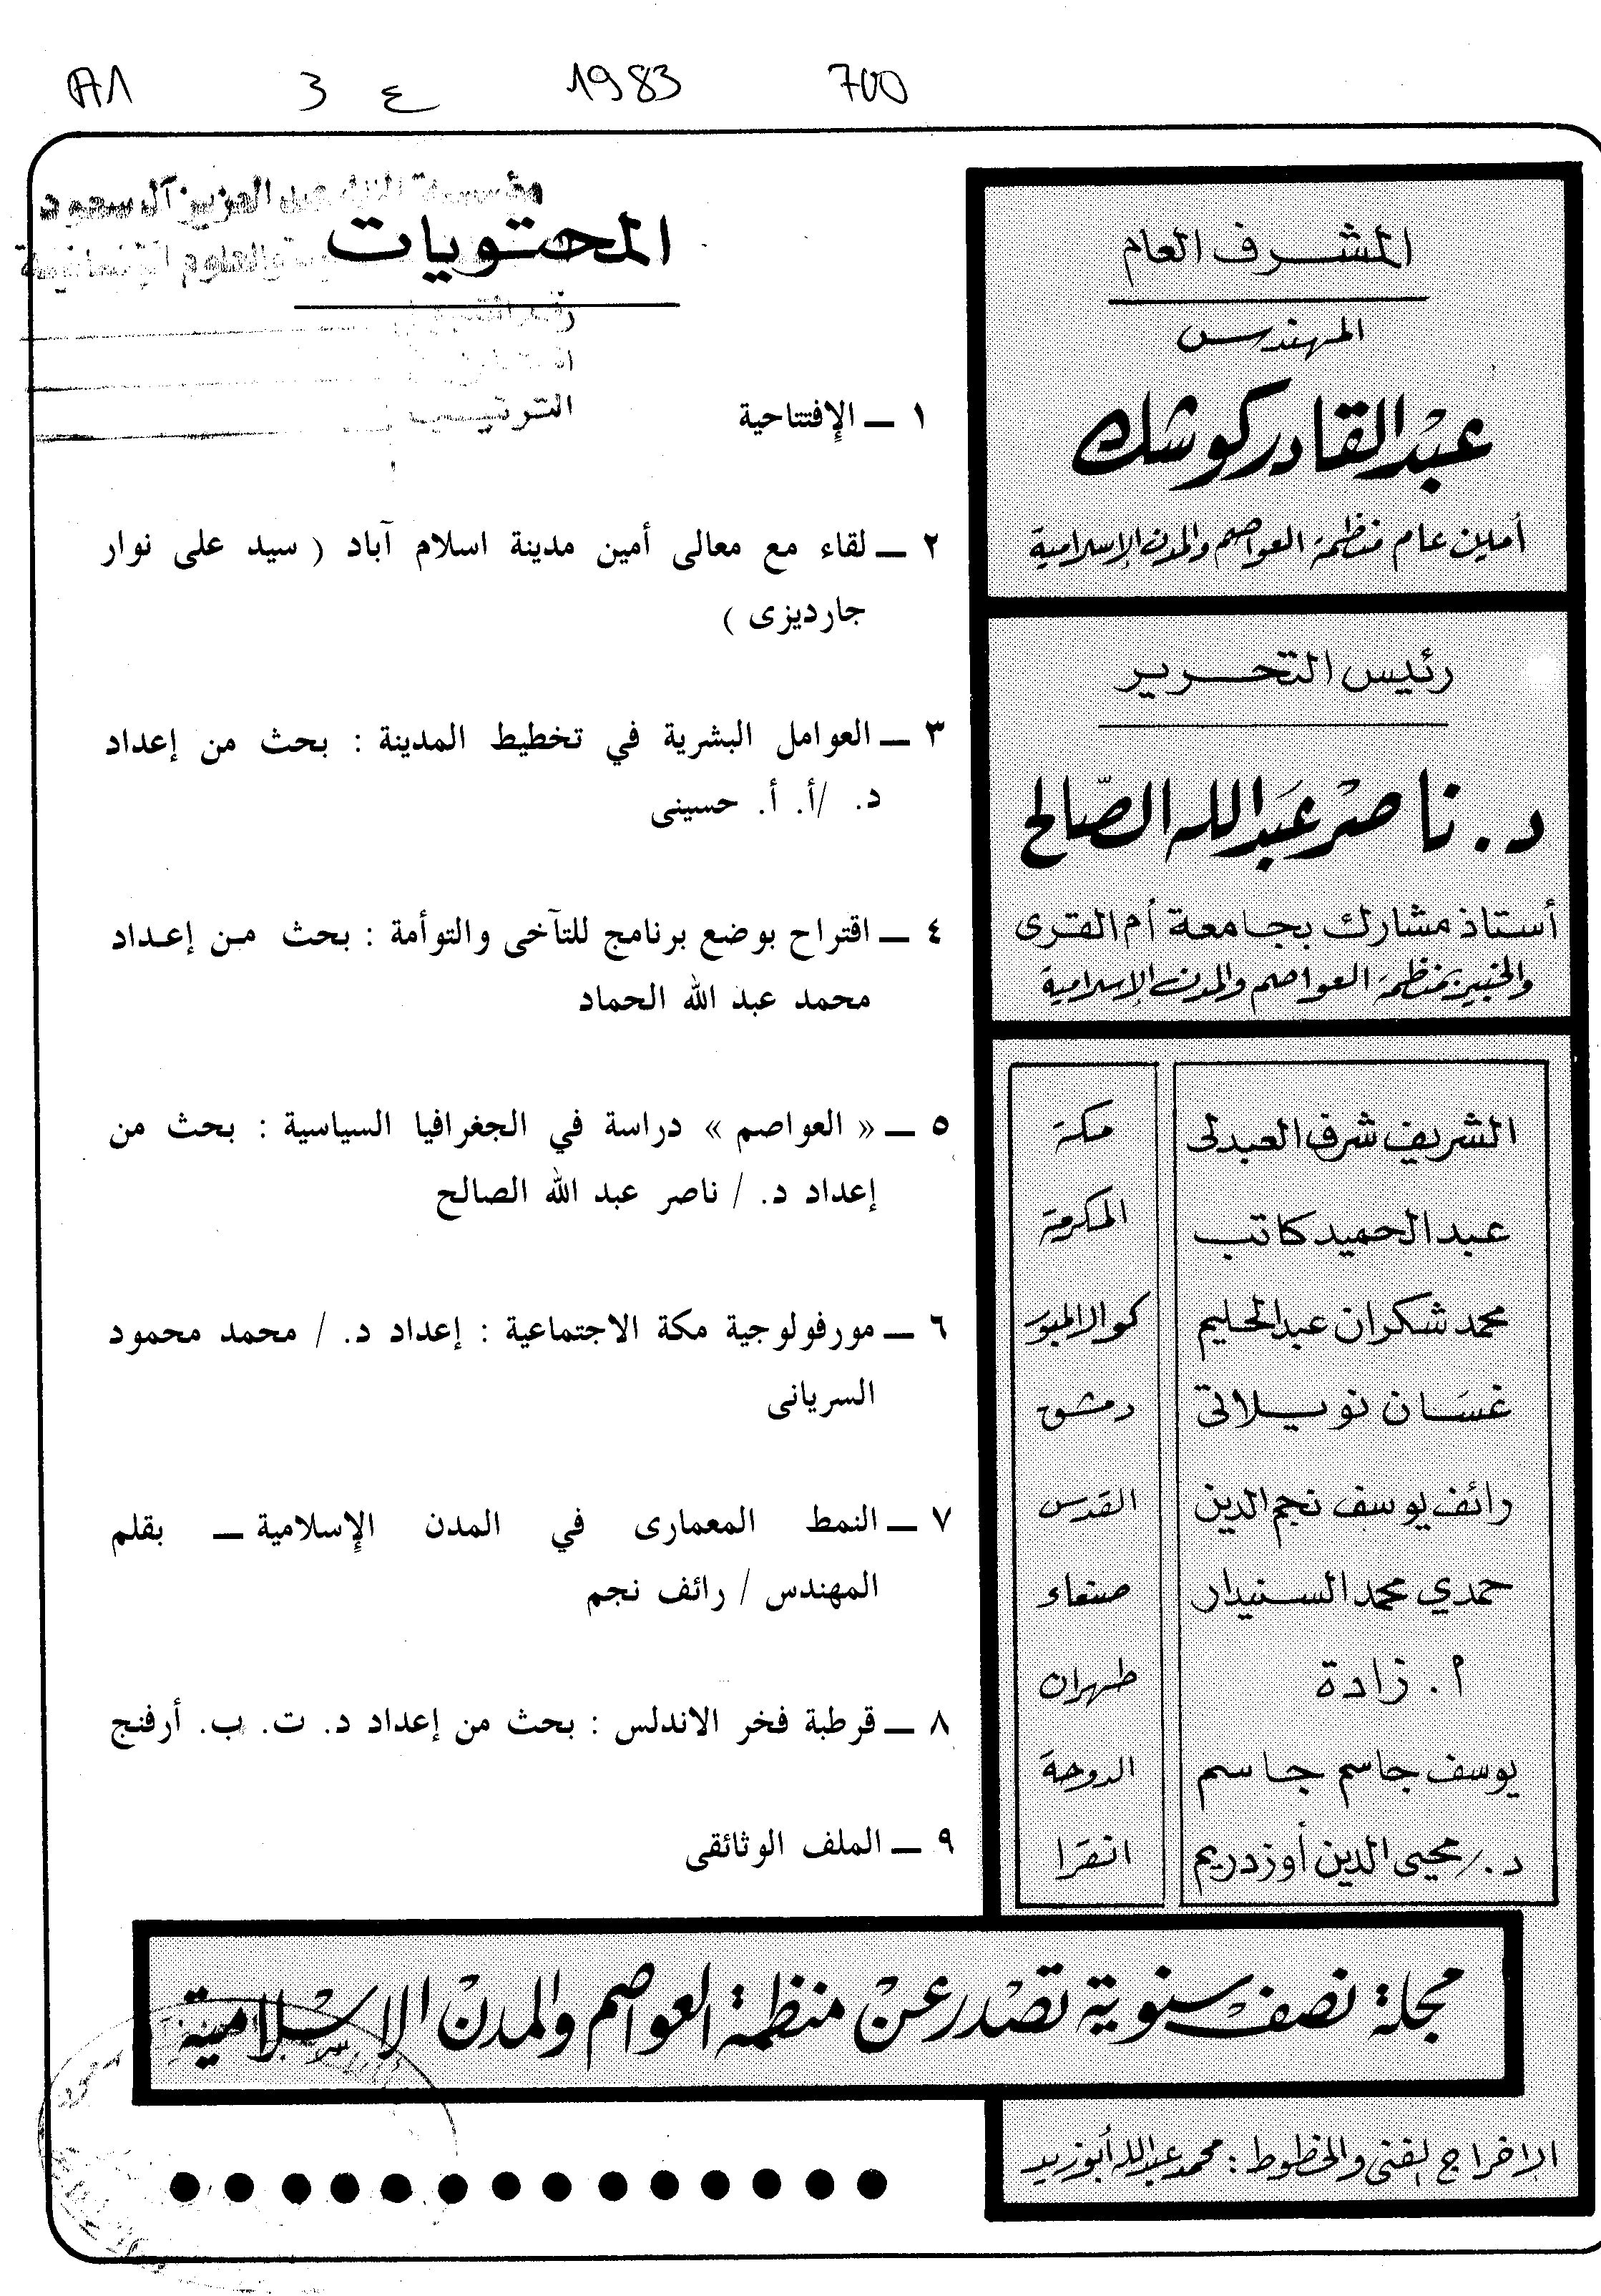 700 1983 ع 3
المشرف العام
المهندس
عبد القادر كوشك
أمين عام منظمة العواصم والمدن الإسلامية
رئيس التحرير
د. ناصر عبد الله الصالح
أستاذ مشارك بجامعة أم القرى
والخبير بمنظمة العواصم والمدن الإسلامية
الشريف شرف العبدلى مكة
عبد الحميد كاتب المكرمة
محمد شكران عبد الحليم كوالالمبور
غسان نويلاتى دمشق
رائف يوسف نجم الدين القدس
حمدي محمد السنيدار صنعاء
م. زادة طهران
يوسف جاسم جاسم الدوحة
د. / محيى الدين أوزدريم انقرا
مؤسسة الملك عبد العزيز آل سعود
والعلوم الإنسانية
المحتويات
الترتيب
١ ــ الإفتتاحية
٢ ــ لقاء مع معالى أمين مدينة اسلام آباد ( سيد على نوار
جارديزى )
٣ ــ العوامل البشرية في تخطيط المدينة : بحث من إعداد
د. /أ. أ. حسينى
٤ ــ اقتراح بوضع برنامج للتآخى والتوأمة : بحث من إعداد
محمد عبد الله الحماد
٥ ــ « العواصم » دراسة في الجغرافيا السياسية : بحث من
إعداد د. / ناصر عبد الله الصالح
٦ ــ مورفولوجية مكة الاجتماعية : إعداد د. / محمد محمود
السريانى
٧ ــ النمط المعمارى في المدن الإسلامية ــ بقلم
المهندس / رائف نجم
٨ ــ قرطبة فخر الاندلس : بحث من إعداد د. ت. ب. أرفنج
٩ ــ الملف الوثائقى
مجلة نصف سنوية تصدر عن منظمة العواصم والمدن الاسلامية
الإخراج الفنى والخطوط : محمد عبد الله أبوزيد